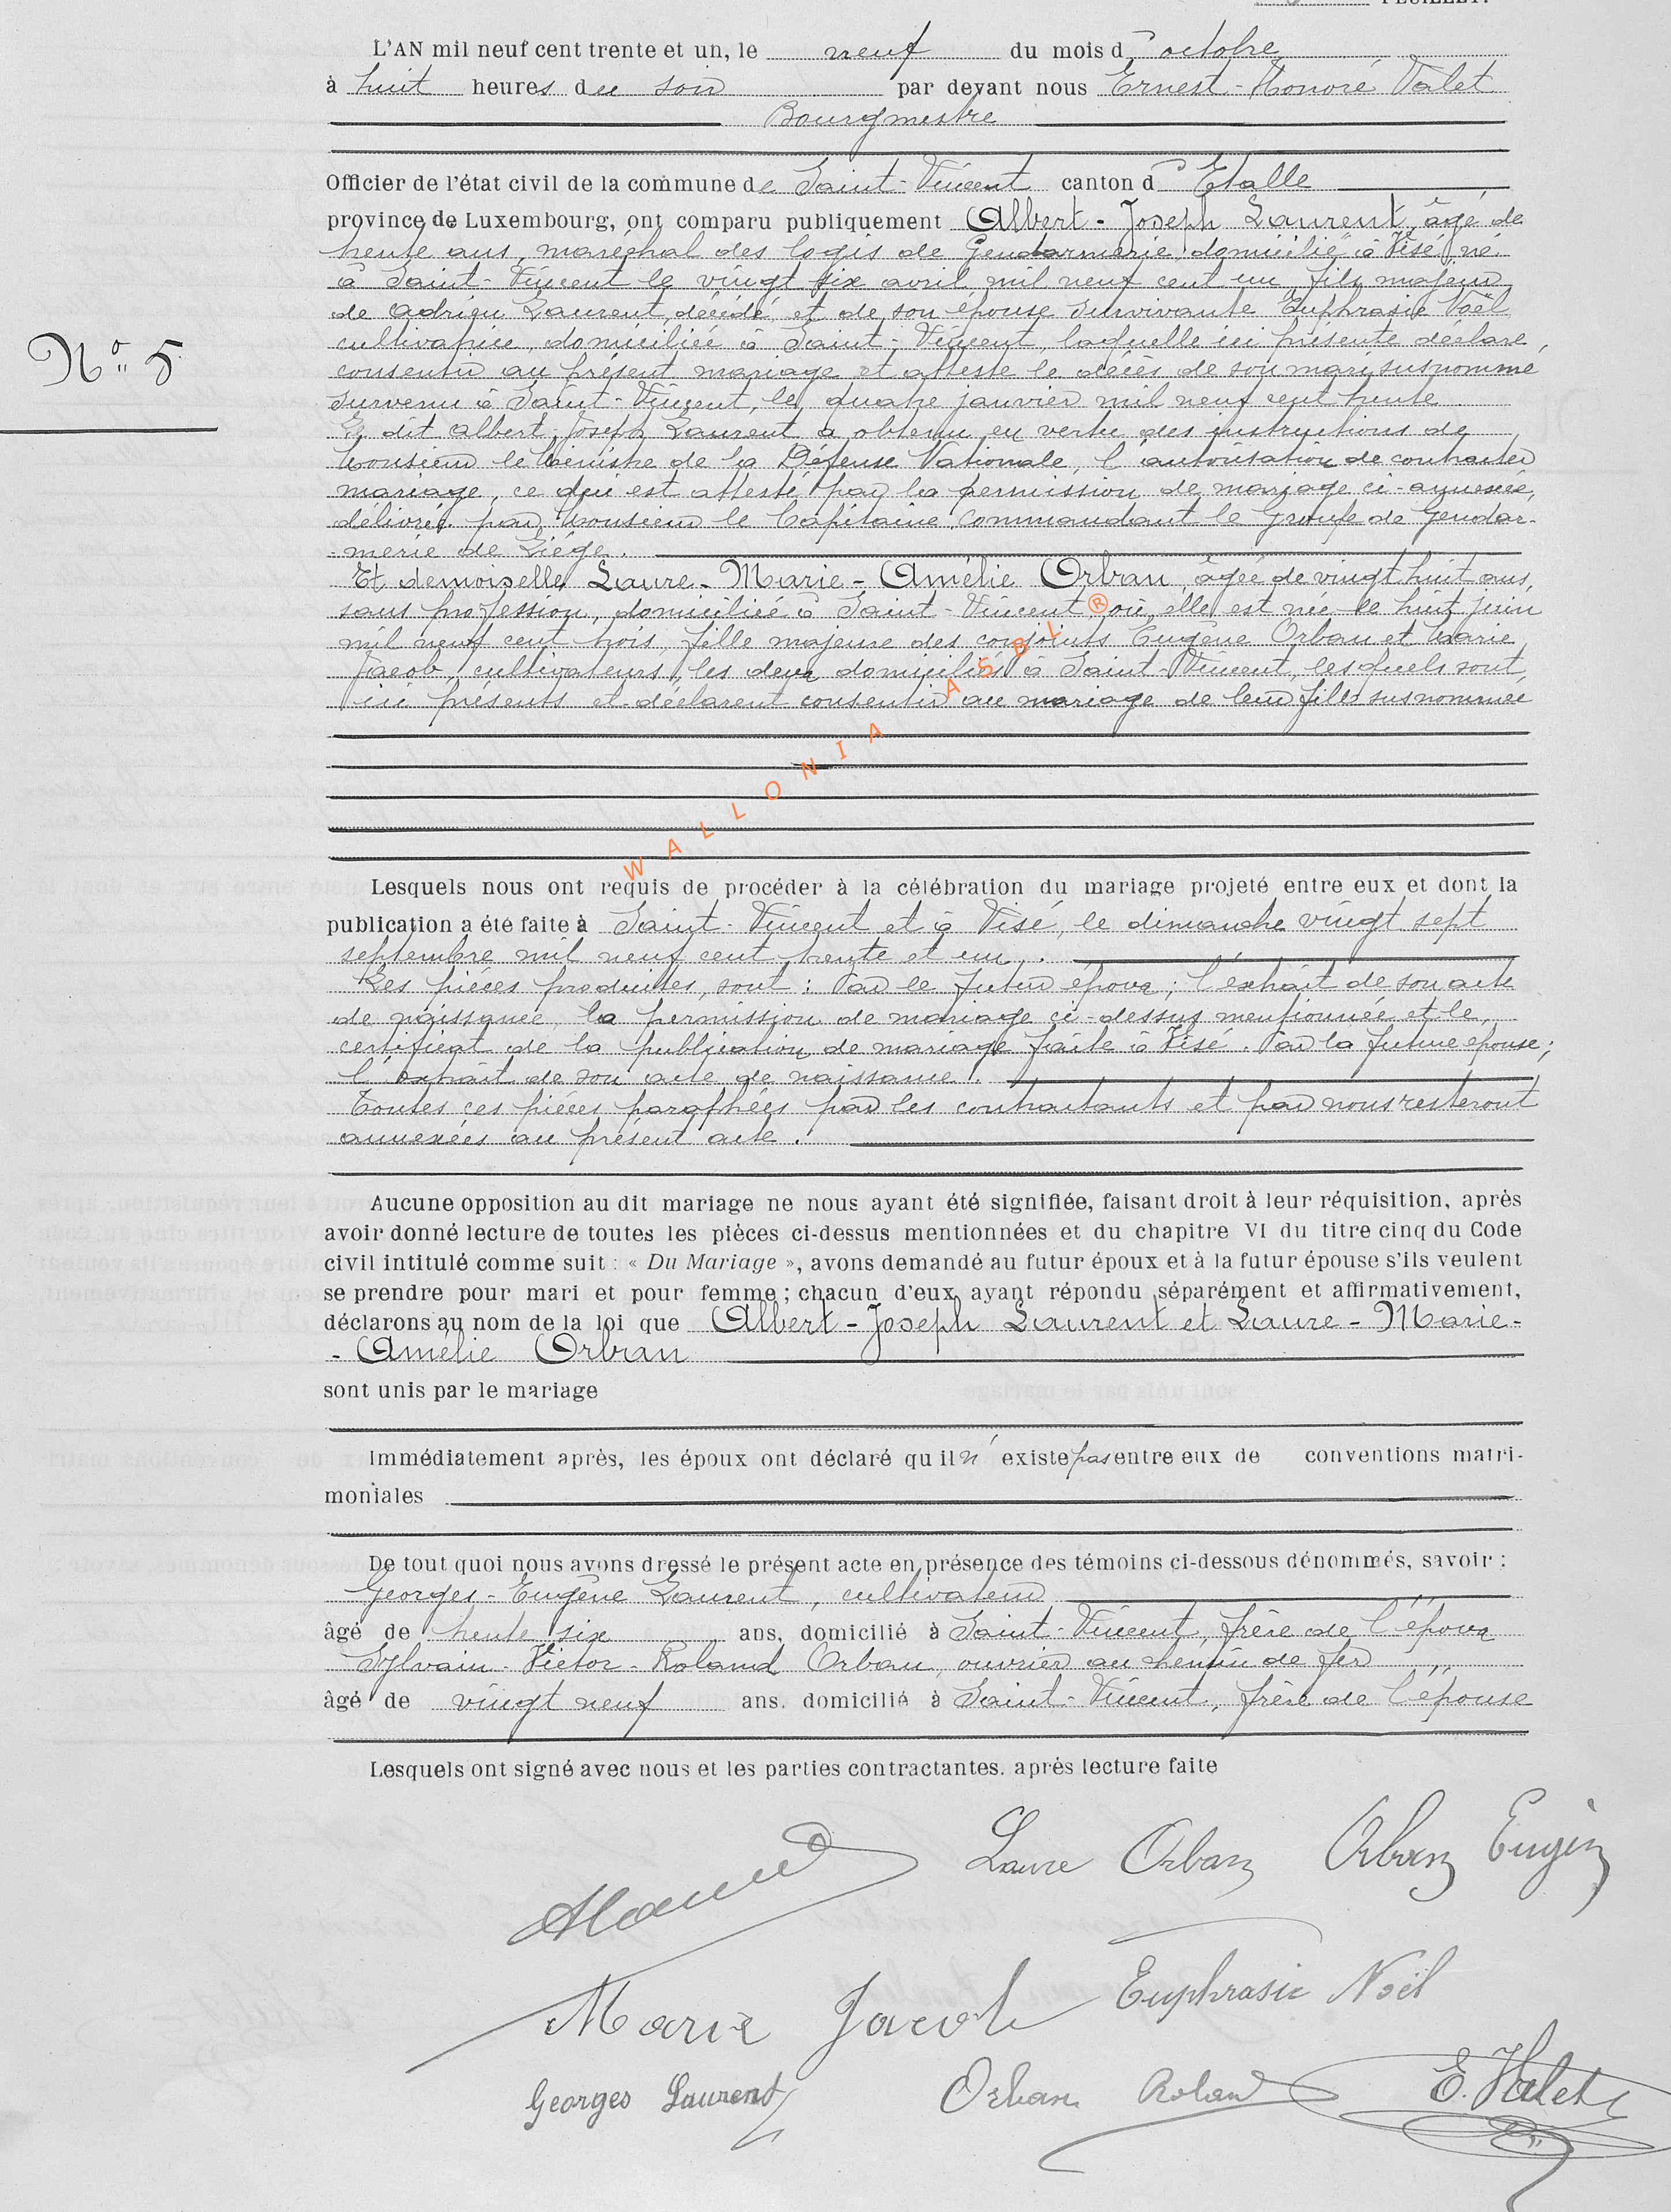 FEUILLET.
L'AN mil neuf cent trente et un, le neuf du mois d' octobre
à huit heures du soir par devant nous Ernest-Honoré Valet
Bourgmestre
Officier de l'état civil de la commune de Saint-Vincent canton d' Etalle
province de Luxembourg, ont comparu publiquement Albert-Joseph Laurent, âgé de
trente ans, maréchal des logis de Gendarmerie, domicilié à Visé, né
à Saint-Vincent le vingt six avril mil neuf cent un, fils majeur
de Adrien Laurent, décédé, et de son épouse survivante Euphrasie Noël
cultivatrice, domiciliée à Saint-Vincent, laquelle ici présente déclare
consentir au présent mariage et atteste le décès de son mari susnommé
survenu à Saint-Vincent, le quatre janvier mil neuf cent trente.
Nº 5
Le dit Albert-Joseph Laurent a obtenu en vertu des instructions de
Monsieur le Ministre de la Défense Nationale, l'autorisation de contracter
mariage, ce qui est attesté par la permission de mariage ci-annexée,
délivrée par Monsieur le Capitaine Commandant le Groupe de Gendar-
-merie de Liége.
Et demoiselle Laure-Marie-Amélie Orban, âgée de vingt huit ans,
sans profession, domiciliée à Saint-Vincent où elle est née le huit juin
mil neuf cent trois, fille majeure des conjoints Eugène Orban et Marie
Jacob, cultivateurs, les deux domiciliés à Saint-Vincent, lesquels sont
ici présents et déclarent consentir au mariage de leur fille susnommée
WALLONIA ASBL ®
Lesquels nous ont requis de procéder à la célébration du mariage projeté entre eux et dont la
publication a été faite à Saint-Vincent et à Visé, le dimanche vingt sept
septembre mil neuf cent trente et un.
Les pièces produites, sont : Par le futur époux; l'extrait de son acte
de naissance, la permission de mariage ci-dessus mentionnée et le
certificat de la publication de mariage faite à Visé. Par la future épouse;
l'extrait de son acte de naissance.
Toutes ces pièces paraphées par les contractants et par nous resteront
annexées au présent acte.
Aucune opposition au dit mariage ne nous ayant été signifiée, faisant droit à leur réquisition, après
avoir donné lecture de toutes les pièces ci-dessus mentionnées et du chapitre VI du titre cinq du Code
civil intitulé comme suit : « Du Mariage », avons demandé au futur époux et à la futur épouse s'ils veulent
se prendre pour mari et pour femme ; chacun d'eux ayant répondu séparément et affirmativement,
déclarons au nom de la loi que Albert-Joseph Laurent et Laure-Marie-
-Amélie Orban
sont unis par le mariage
Immédiatement après, les époux ont déclaré qu il n'existe pas entre eux de conventions matri-
moniales
De tout quoi nous avons dressé le présent acte en présence des témoins ci-dessous dénommés, savoir :
Georges-Eugène Laurent, cultivateur
âgé de trente six ans, domicilié à Saint-Vincent, frère de l'époux
Sylvain-Victor-Roland Orban, ouvrier au chemin de fer
âgé de vingt neuf ans, domicilié à Saint-Vincent, frère de l'épouse
Lesquels ont signé avec nous et les parties contractantes. après lecture faite
Laure Orban Orban Eugèn
Marie Jacob Euphrasie Noël
Georges Laurent Orban Roland E. Valet